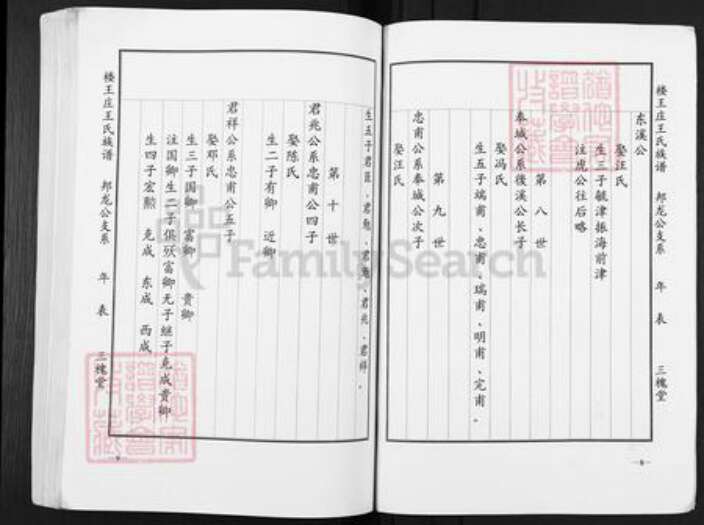 楼王庄王氏族谱 邦龙公支系 年表 三槐堂
东溪公
娶汪氏
生三子毓津振海前津
注虎公往后略
第八世
奉城公系後溪公长子
娶冯氏
生五子端甫、忠甫、瑞甫、明甫、完甫。
第九世
忠甫公系奉城公次子
娶汪氏
生五子君臣、君勉、君兆、君祥。
第十世
君兆公系忠甫公四子
娶陈氏
生二子有卿 近卿
君祥公系忠甫公五子
娶邓氏
生三子国卿 富卿 贵卿
注国卿生二子俱殁富卿无子继子克成贵卿
生四子宏勲 克成 东成 西成
楼王庄王氏族谱 邦龙公支系 年表 三槐堂
FamilySearch